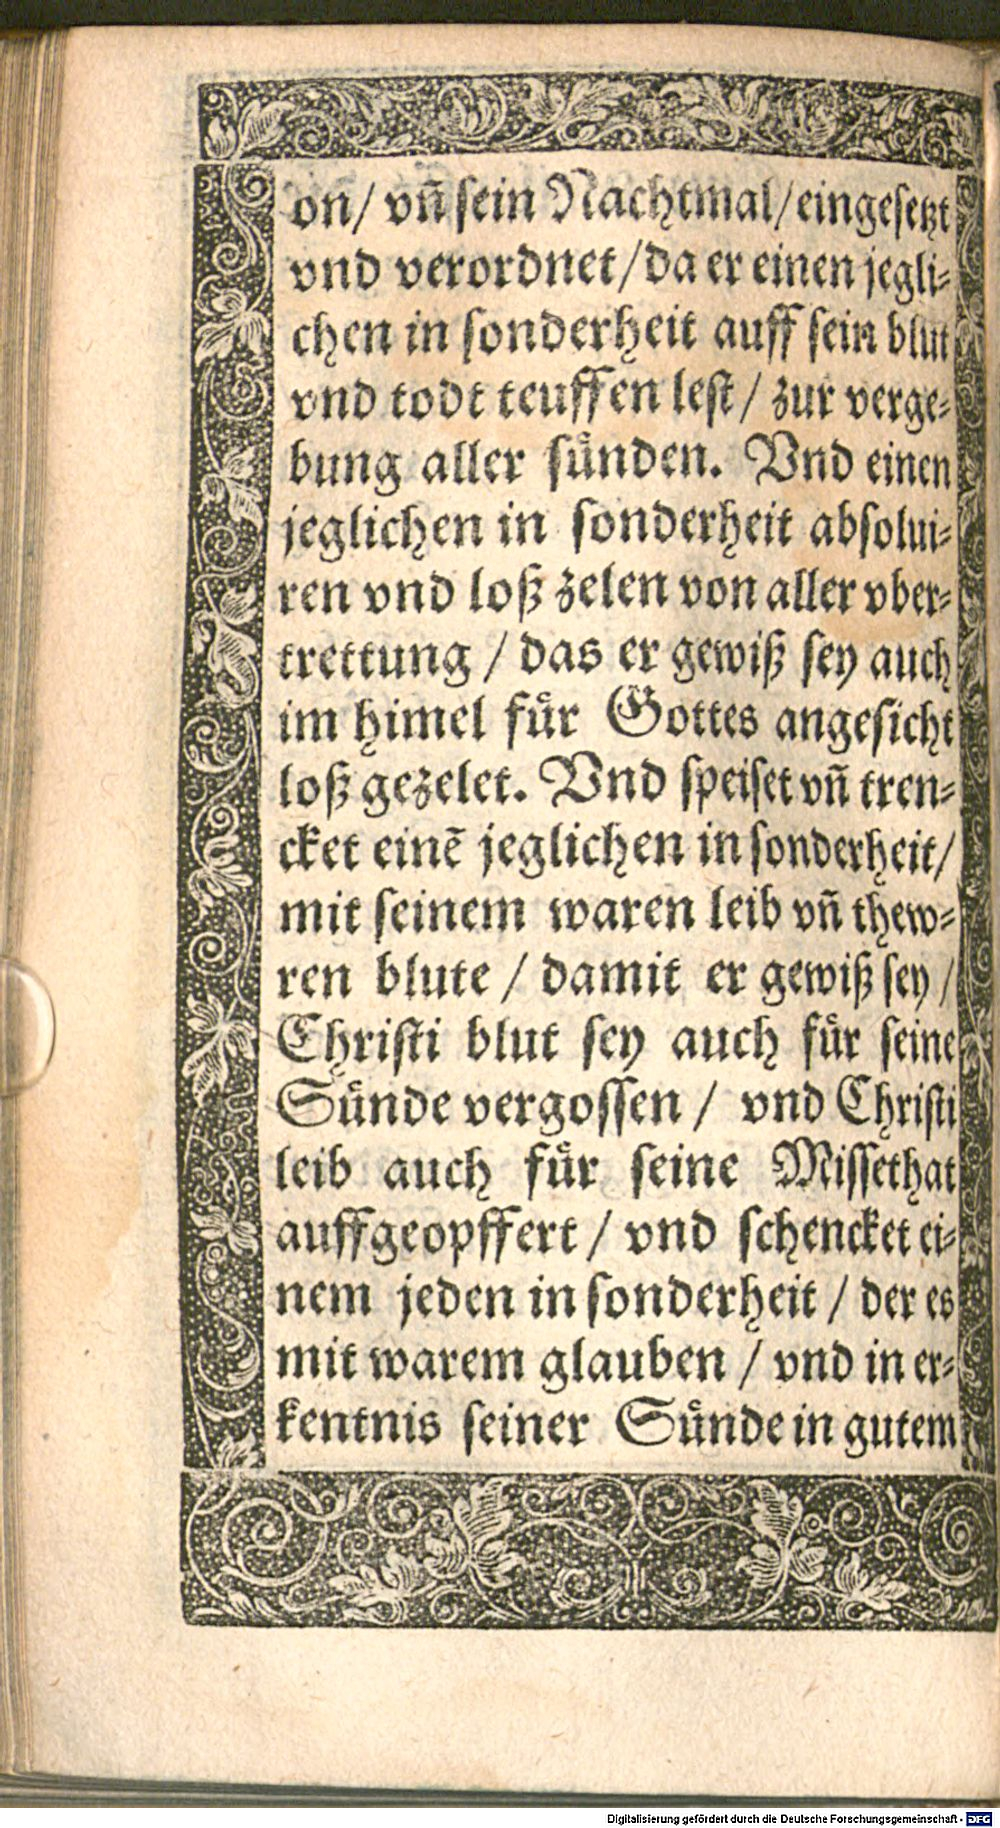 on/ vñ sein Nachtmal/ eingesetzt
vnd verordnet/ da er einen jegli⸗
chen in sonderheit auff sein blut
vnd todt teuffen lest/ zur verge⸗
bung aller sünden. Vnd einen
jeglichen in sonderheit absolui⸗
ren vnd loß zelen von aller vber⸗
trettung / das er gewiß sey auch
im himel für Gottes angesicht
loß gezelet. Vnd speiset vñ tren⸗
cket einē jeglichen in sonderheit/
mit seinem waren leib vñ thew⸗
ren blute / damit er gewiß sey /
Christi blut sey auch für seine
Sünde vergossen / vnd Christi
leib auch für seine Missethat
auffgeopffert / vnd schencket ei⸗
nem jeden in sonderheit / der es
mit warem glauben / vnd in er⸗
kentnis seiner Sünde in gutem
Digitalisierung gefördert durch die Deutsche Forschungsgemeinschaft - DFG